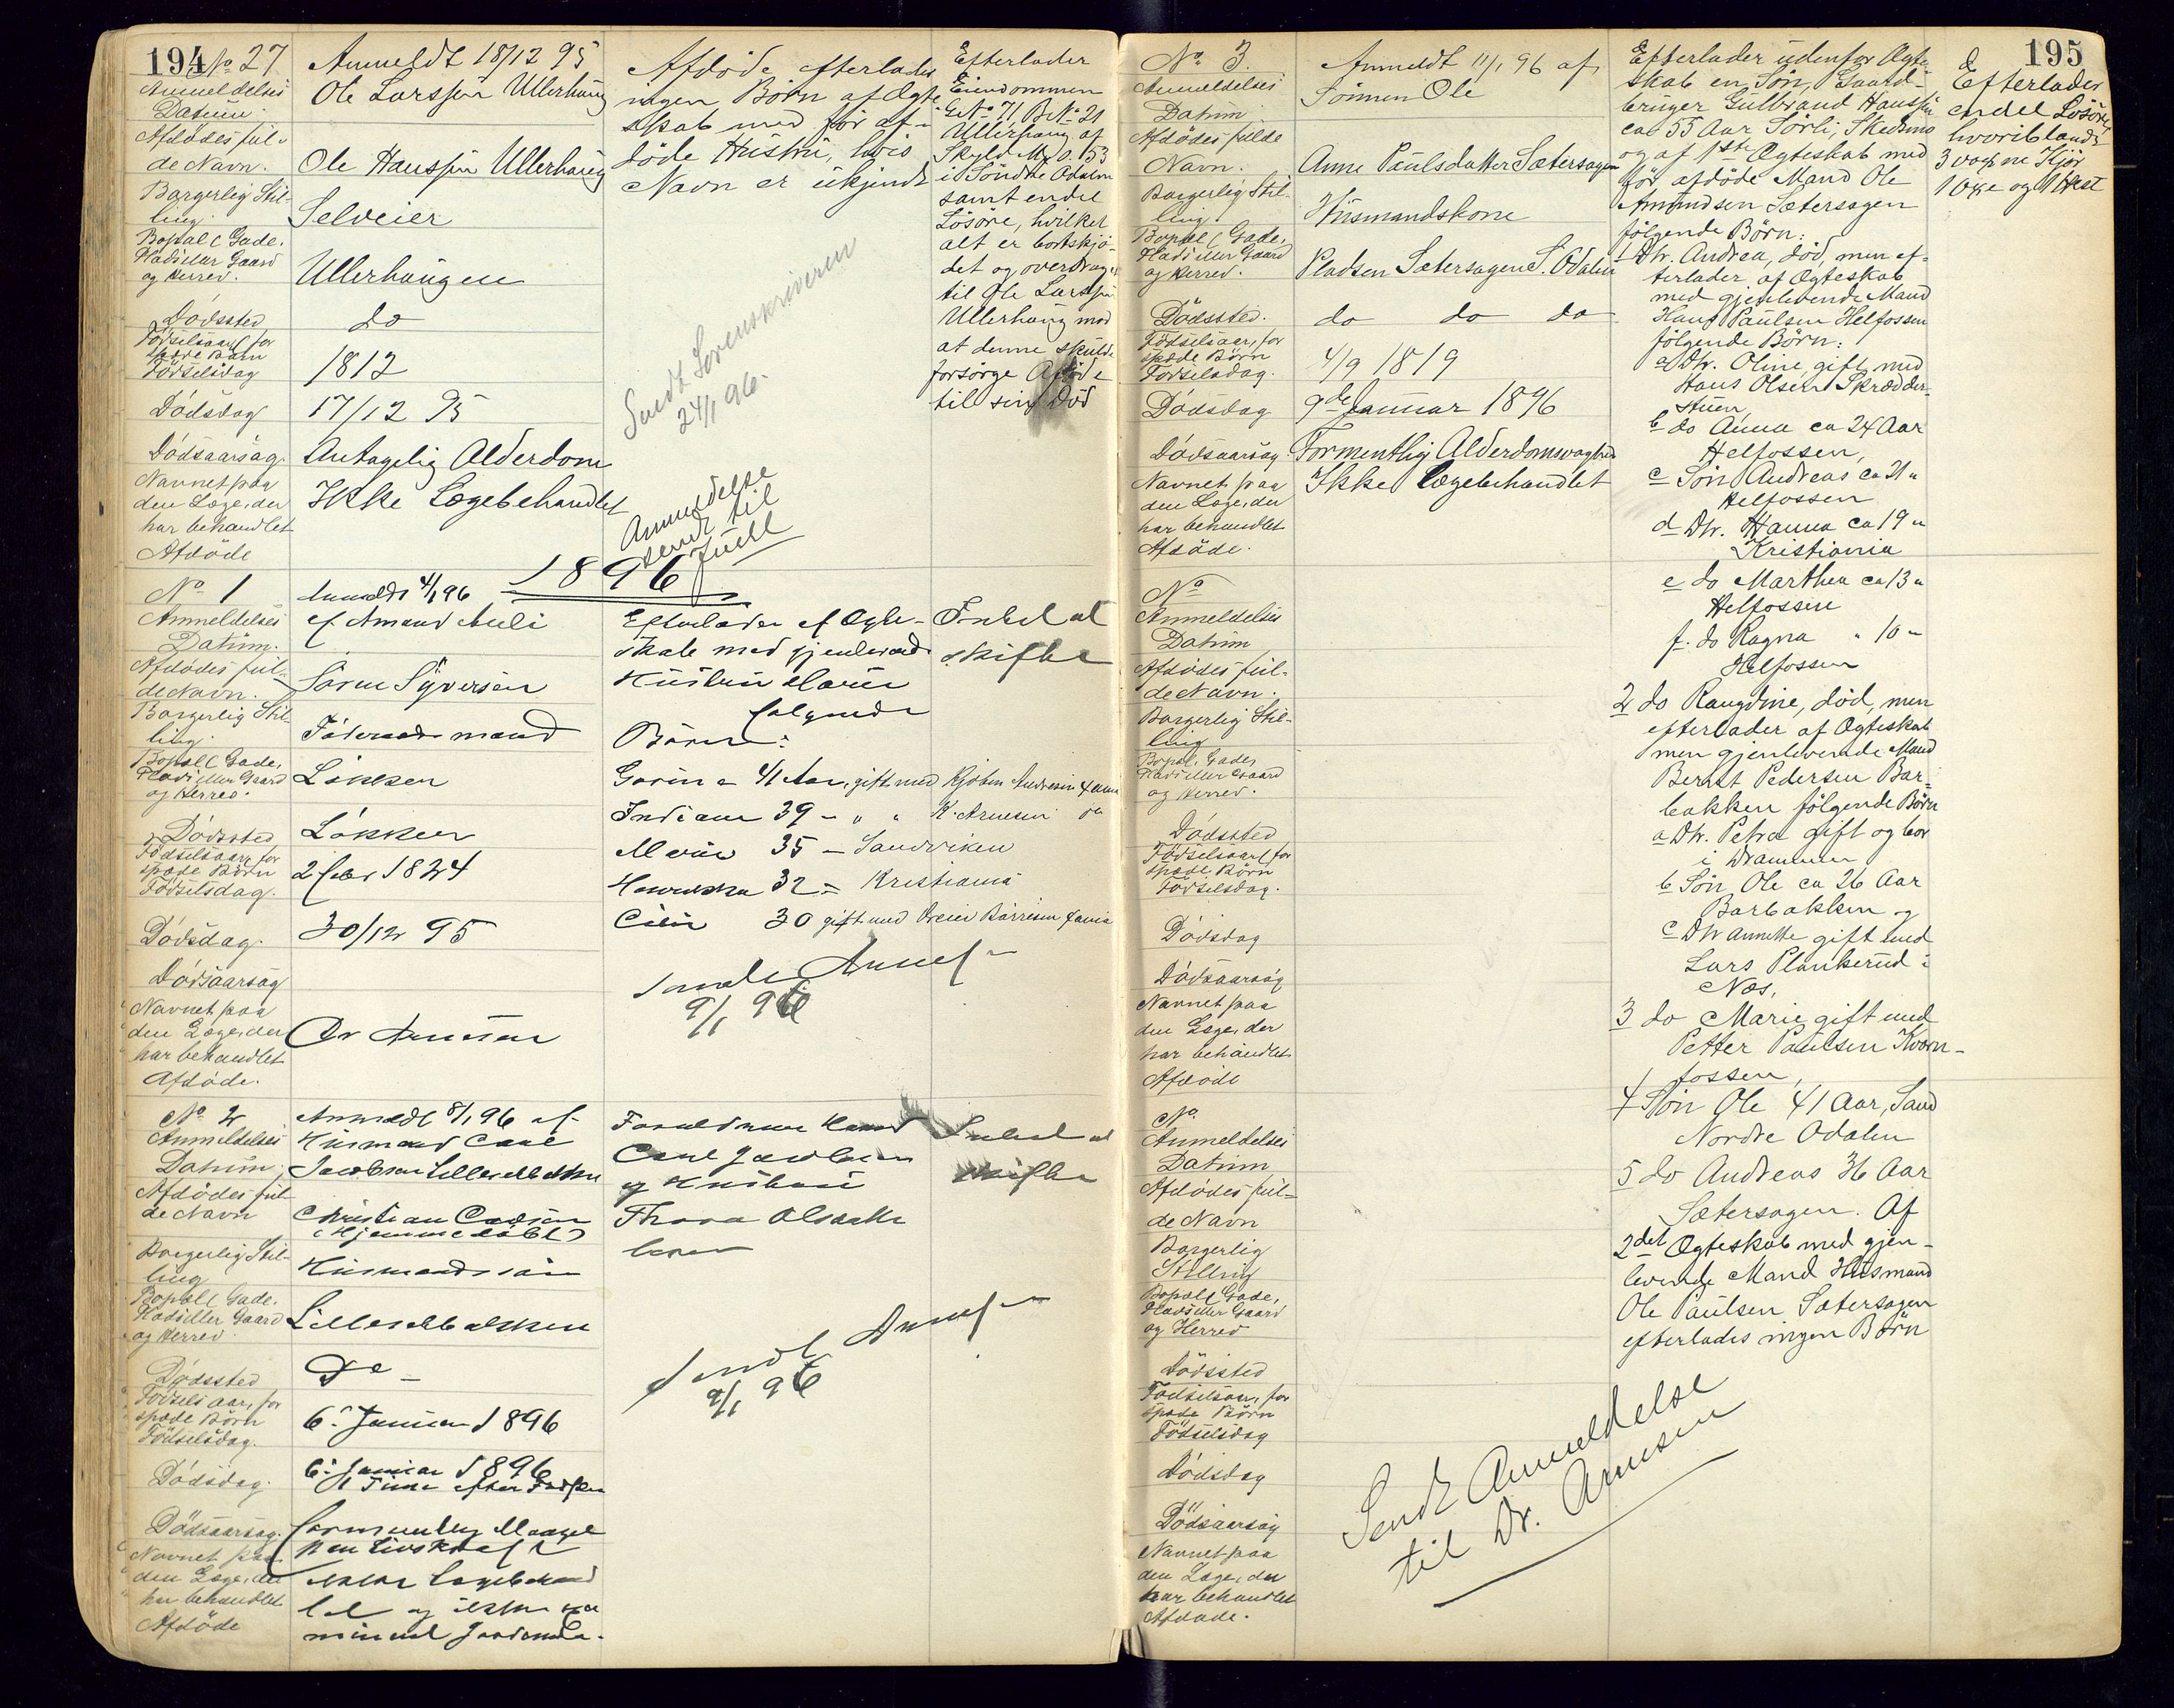 194
No 27
Anmeldelses
Datum.
Afdødes ful-
de Navn.
Borgerlig Stil-
ling.
Bopæl (Gade,
Plads eller Gaard
og Herred.
Dødssted
Fødselsaar, for
spæde Børn
Fødselsdag
Dødsdag
Dødsaarsag.
Navnet paa
den Læge, der
har behandlet
Afdøde
Anmeldt 18/12 95
Ole Larssen Ullerhaug
Ole Hanssen Ullerhaug
Selveier
Ullerhaugen
do
1812
17/12 95
Antagelig Alderdom
Ikke Lægebehandlet
Afdøde efterlader
ingen Børn af Ægte-
skab med før af-
døde Hustru, hvis
Navn er ukjendt
Sendt Sorenskriveren
24/1 96.
Anmeldelse
sendt til
Juell
Efterlader
Eiendommen
G.No 71 B.No 21
Ullerhaug af
Skyld M. 0.153
i Søndre Odalen
samt endel
Løsøre, hvilket
alt er bortskjø-
det og overdraget
til Ole Larssen
Ullerhaug mod
at denne skulde
forsørge Afdøde
til sin Død
1896
No 1
Anmeldelses
Datum.
Afdødes ful-
de Navn.
Borgerlig Stil-
ling.
Bopæl (Gade,
Plads eller Gaard
og Herred.
Dødssted
Fødselsaar, for
spæde Børn
Fødselsdag.
Dødsdag.
Dødsaarsag
Navnet paa
den Læge, der
har behandlet
Afdøde.
Anmeldt 4/1 96
af Amund
Søren Syversen
Føderaadsmand
Løkken
Løkken
2 febr 1824
30/12 95
Dr Arnesen
Efterlader af Ægte-
skab med gjenlevend
Hustru Maria
følgende
Børn:
Gorine 41 Aar, gift med
Indiane 39 - " " K. Arnesen
35 - Sandviken
32 - Kristiania
30 gift med
Sendt Arnesen
9/1 96
Intet at
skifte
No 2
Anmeldelses
Datum
Afdødes ful-
de Navn
Borgerlig Stil-
ling
Bopæl (Gade.
Plads eller Gaard
og Herred
Dødssted
Fødselsaar, for
spæde Børn
Fødselsdag.
Dødsdag.
Dødsaarsag.
Navnet paa
den Læge, der
har behandlet
Afdøde
Anmeldt 8/1 96 af
Husmand Carl
Jacobsen
Christian Carlsen
(Hjemmedøbt)
Husmandssøn
Do -
6. Januar 1896
6. Januar 1896
1 Time efter Fødselen
formentlig Mangel
paa Livskraft
ikke Lægebehand
let og ikke
Forældrene Husmand
Carl Jacobsen
og Hustru
Thora Olsdatter
Sendt Arnesen
9/1 96
Intet at
skifte
195
No 3.
Anmeldelses
Datum.
Afdødes fulde
Navn.
Borgerlig Stil-
ling.
Bopæl (Gade,
Plads eller Gaard
og Herred.
Dødssted.
Fødselsaar, for
spæde Børn
Fødselsdag.
Dødsdag
Dødsaarsag
Navnet paa
den Læge, der
har behandlet
Afdøde.
Anmeldt 11/1 96 af
Sønnen Ole
Anne Paulsdatter Sætersagen
Husmandskone
Pladsen Sætersagen S. Odalen
do do do
4/9 1819
9de Januar 1896
Formentlig Alderdomssvaghed
Ikke Lægebehandlet
Efterlader udenfor Ægte-
skab en Søn, Gaard-
bruger Gulbrand Hanssen
ca 55 Aar Sørli, Skedsmo
og af 1ste Ægteskab med
før afdøde Mand Ole
Amundsen Sætersagen
følgende Børn:
1 Dtr. Andrea, død, men ef-
terlader af Ægteskab
med gjenlevende Mand
Hans Paulsen Helfossen
følgende Børn:
a Dtr. Oline, gift med
Hans Olsen Skrædder-
stuen,
b do Anna ca 24 Aar
Helfossen,
c Søn Andreas ca 21 "
Helfossen
d Dtr. Hanna ca 19 "
Kristiania
e do Marthea ca 13 "
Helfossen
f. do Ragna " 10 "
Helfossen
2 do Rangdine, død, men
efterlader af Ægteskab
men gjenlevende Mand
Bernt Pedersen Bar-
bakken følgende Børn
a Dtr. Petra gift og bor
i Drammen
b Søn Ole ca 26 Aar
Barbakken og
c Dtr Annette gift med
Lars Plankerud i
Næs,
3 do Marie gift med
Petter Paulsen Kvern-
fossen,
4 Søn Ole 41 Aar, Sand
Nordre Odalen
5 do Andreas 36 Aar
Sætersagen. Af
2det Ægteskab med gjen-
levende Mand Husmand
Ole Paulsen Sætersagen
efterlades ingen Børn
Efterlader
endel Løsøre,
hvoriblandt
3 voxne Kjør
1 Oxe og 1 Hest
No
Anmeldelses
Datum
Afdødes ful-
de Navn.
Borgerlig Stil-
ling
Bopæl, Gade,
Plads eller Gaard
og Herred.
Dødssted
Fødselsaar, for
spæde Børn
Fødselsdag.
Dødsdag
Dødsaarsag
Navnet paa
den Læge, der
har behandlet
Afdøde
No.
Anmeldelses
Datum
Afdødes ful-
de Navn
Borgerlig
Stilling
Bopæl (Gade,
Plads eller Gaard
og Herred
Dødssted
Fødselsaar, for
spæde Børn
Fødselsdag
Dødsdag
Dødsaarsag
Navnet paa
den Læge, der
har behandlet
Afdøde.
Sendt Anmeldelse
til Dr. Arnesen